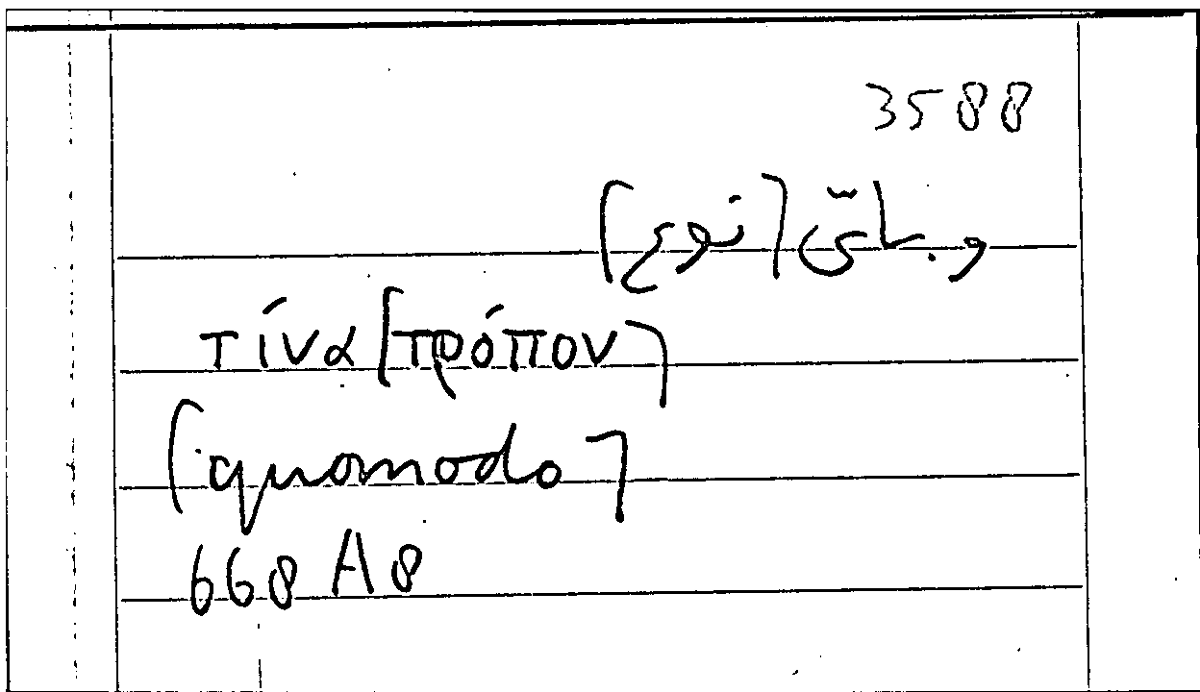 3588
وبأيّ [نوع]
τίνα [πρόπον]
[quomodo]
668 A8